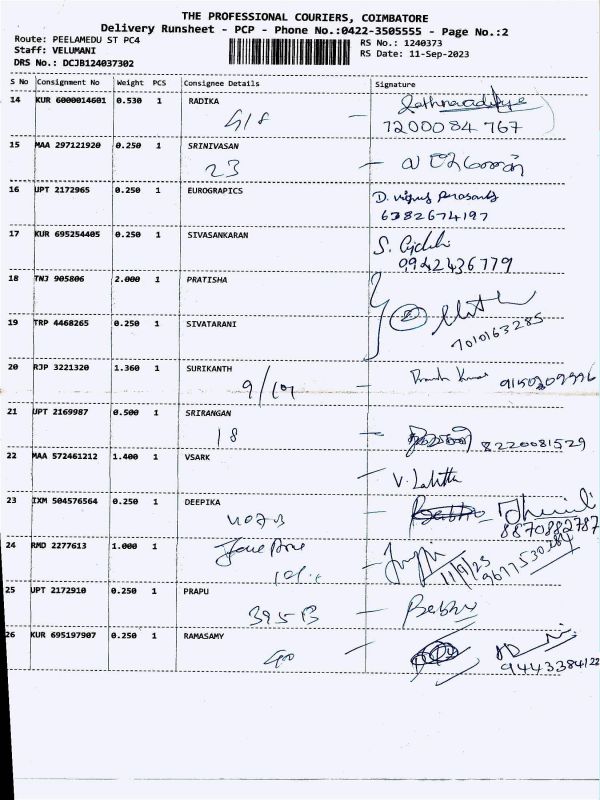 THE PROFESSIONAL COURIERS, COIMBATORE
Delivery Runsheet - PCP - Phone No.:0422-3505555 - Page No.:2
Route: PEELAMEDU ST PC4
RS No.: 1240373
Staff: VELUMANI
RS Date: 11-Sep-2023
DRS No.: DCJB124037302
S No Consignment No Weight PCS Consignee Details Signature
14 KUR 6000014601 0.530 1 RADIKA
7200084767
15 MAA 297121920 0.250 1 SRINIVASAN
23
16 UPT 2172965 0.250 1 EUROGRAPICS
6382674197
17 KUR 695254405 0.250 1 SIVASANKARAN
09942436779
18 TNJ 905806 2.000 1 PRATISHA
7010163285
19 TRP 4468265 0.250 1 SIVATARANI
20 RJP 3221320 1.360 1 SURIKANTH
21 UPT 2169987 0.500 1 SRIRANGAN
18 8220081529
22 MAA 572461212 1.400 1 VSARK
V. Lalitha
23 IXM 504576564 0.250 1 DEEPIKA
8870882787
24 RMD 2277613 1.000 1
11/9/23
9677530284
25 UPT 2172910 0.250 1 PRAPU
395 B
26 KUR 695197907 0.250 1 RAMASAMY
400
9443384122